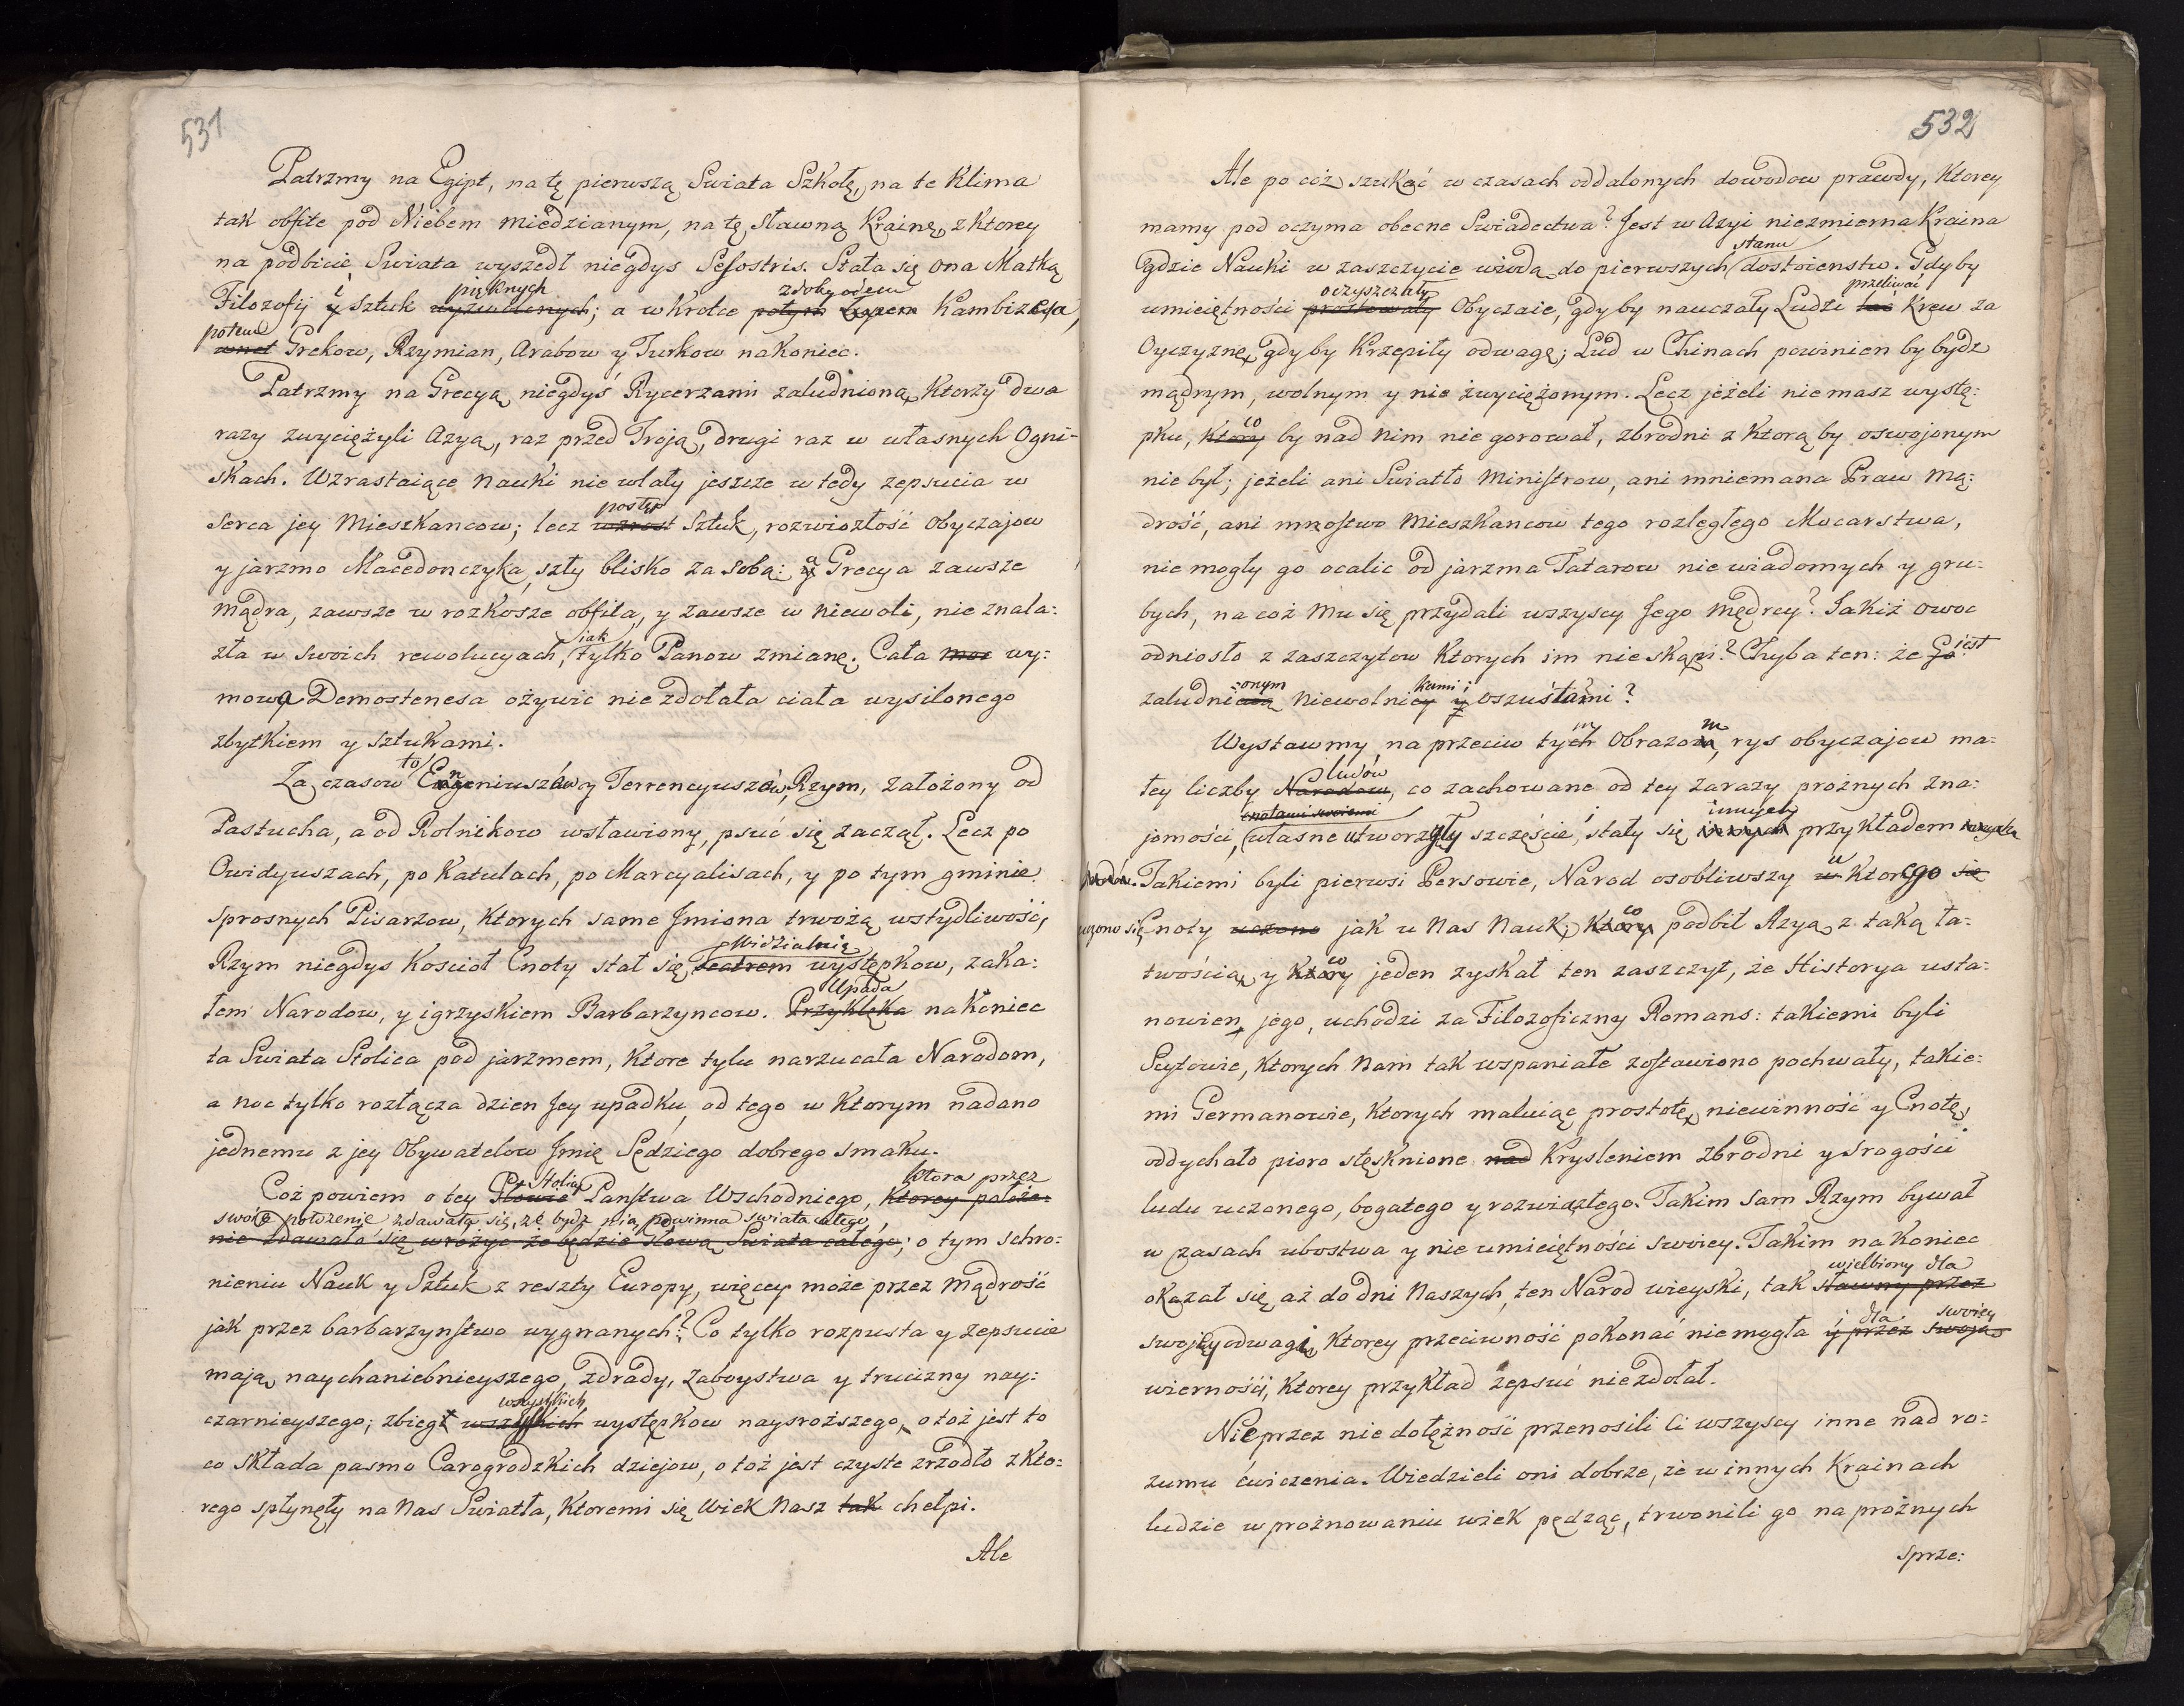 531
Patrzmy na Egipt, na tę pierwszą Swiata Szkołę, na te Klima
tak obfite pod Niebem miedzianym, na tę sławną Krainę, z ktorey
na podbicie Swiata wyszedł niegdys Sesostris. Stała się ona Matką
i pięknych zdobyczem
Filozofij y Sztuk wyzwolonych; a wkrotce potym łupem Kambizesa,
potem
wnet Grekow, Rzymian, Arabow y Turkow nakoniec.
Patrzmy na Grecyą niegdyś Rycerzami zaludnioną, Ktorzy dwa
razy zwyciężyli Azyą, raz przed Troją, drugi raz w własnych Ogni-
skach. Wzrastaiące Nauki nie wlały jeszcze w tedy zepsucia w
postęp
serca jey Mieszkancow; lecz wzrost Sztuk, rozwiozłość obyczajow
a
y jarzmo Macedonczyka, szły blisko za sobą: y Grecya zawsze
mądra, zawsze w rozkosze obfita, y zawsze w niewoli, nie znala:
iak
zła w swoich rewolucyach, tylko Panow zmianę. Cała moc wy:
mowa Demostenesa ożywic nie zdołała ciała wysilonego
zbytkiem y sztukami.
to
Za czasow Enniuszów y Terrencyuszów, Rzym, założony od
Pastucha, a od Rolnikow wsławiony, psuć się zaczął. Lecz po
Owidyuszach, po Katulach, po Marcyalisach, y po tym gminie
sprosnych Pisarzow, ktorych same Jmiona trwożą wstydliwość,
Widzialnią
Rzym niegdys Kosciół Cnoty stał się teatrem występkow, zaka:
Upada
łem Narodow, y igrzyskiem Barbarzyncow. Przyklęka nakoniec
ta Swiata Stolica pod jarzmem, Ktore tylu narzucała Narodom,
a noc tylko rozłącza dzien Jey upadku, od tego w Ktorym nadano
jednemu z jey Obywatelow Jmię Sędziego dobrego smaku.
Stolicy ktora przez
Coż powiem o tey Głowie Panstwa Wschodniego, Ktorey położe-
swoie położenie zdawała się, że bydz nią powinna swiata całego
nie zdawało się wrożyc że będzie Głową Swiata całego; o tym schro:
nieniu Nauk y Sztuk z reszty Europy, więcey może przez mądrość
jak przez barbarzynstwo wygnanych? Co tylko rozpusta y zepsucie
mają naychaniebnieyszego, zdrady, zaboystwa y trucizny nay:
wszystkich
czarnieyszego; zbiegł wszystkich występkow naysroższego, otoż jest to
co składa pasmo Carogrodzkich dziejow, otoż jest czyste zrzodło z kto:
rego spłynęły na Nas Swiatła, Ktoremi się Wiek Nasz tak chełpi.
Ale
532
Ale po coż szukać w czasach oddalonych dowodow prawdy, Ktorey
mamy pod oczyma obecne Swiadectwa? Jest w Azyi niezmierna Kraina
stanu
gdzie Nauki w zaszczycie wiodą do pierwszych dostoienstw. Gdyby
oczyszczały przeliwać
umieiętności prostowały Obyczaie, gdyby nauczały Ludzi lać Krew za
Oyczyznę, gdyby Krzepiły odwagę; Lud w Chinach powinien by bydz
mądrym, wolnym y nie zwyciężonym. Lecz jeżeli nie masz wystę:
co
pku, Ktory by nad nim nie gorował, zbrodni z Ktorą by oswojonym
nie był; jeżeli ani Swiatło Ministrow, ani mniemana Praw Mą:
drość, ani mnostwo Mieszkancow tego rozległego Mocarstwa,
nie mogły go ocalic od jarzma Tatarow nie wiadomych y gru:
bych, na coż mu się przydali wszyscy Jego Mędrcy? Jakiż owoc
jest
odniosło z zaszczytow Ktorych im nie skąpi? Chyba ten: że Go
-onym kami i
zaludniaią Niewolnicy y oszustami?
m m
Wystawmy na przeciw tych Obrazom, rys obyczajow ma:
ludów
łey liczby Narodow, co zachowane od tey zarazy prożnych zna:
cnotami swoiemi innych
jomości, własne utworzyły szczęście, stały się innych przykładem
u
Takiemi byli pierwsi Persowie, Narod osobliwszy w Ktorego się
co
uczono się Cnoty uczono jak u Nas Nauk; Ktory podbił Azyą z taką ła:
co
twością, y Ktory jeden zyskał ten zaszczyt, że Historya usta:
nowien jego, uchodzi za Filozoficzny Romans: takiemi byli
Scytowie, Ktorych Nam tak wspaniałe zostawiono pochwały, takie:
mi Germanowie, Ktorych maluiąc prostotę, niewinność y Cnotę,
oddychało pioro stęsknione nad Krysleniem zbrodni y srogości
ludu uczonego, bogatego y rozwiązłego. Takim sam Rzym bywał
w czasach ubostwa y nie umieiętności swoiey. Takim nakoniec
wielbiony dla
okazał się, aż do dni Naszych, ten Narod wieyski, tak sławny przez
i dla swoiey
swojey odwagi, Ktorey przeciwność pokonać nie mogła y przez swoją
wierności, Ktorey przykład zepsuć nie zdołał.
Nie przez nie dołężność przenosili Ci wszyscy inne nad ro:
zumu ćwiczenia. Wiedzieli oni dobrze, że w innych Krainach
ludzie w prożnowaniu wiek pędząc, trwonili go na prożnych
sprze: